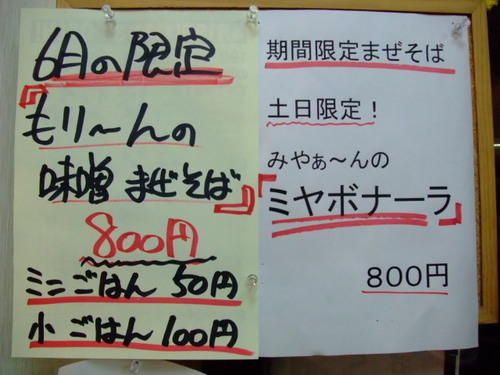 6月の限定
『もり〜んの
味噌まぜそば』
800円
ミニごはん 50円
小ごはん 100円
期間限定まぜそば
土日限定！
みやぁ〜んの
『ミヤボナーラ』
800円